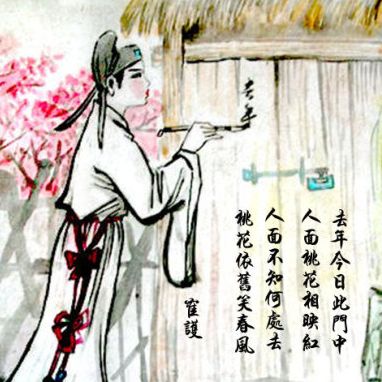 去年
去年今日此門中
人面桃花相映紅
人面不知何處去
桃花依舊笑春風
崔護